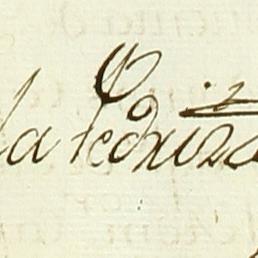 la Pedriza